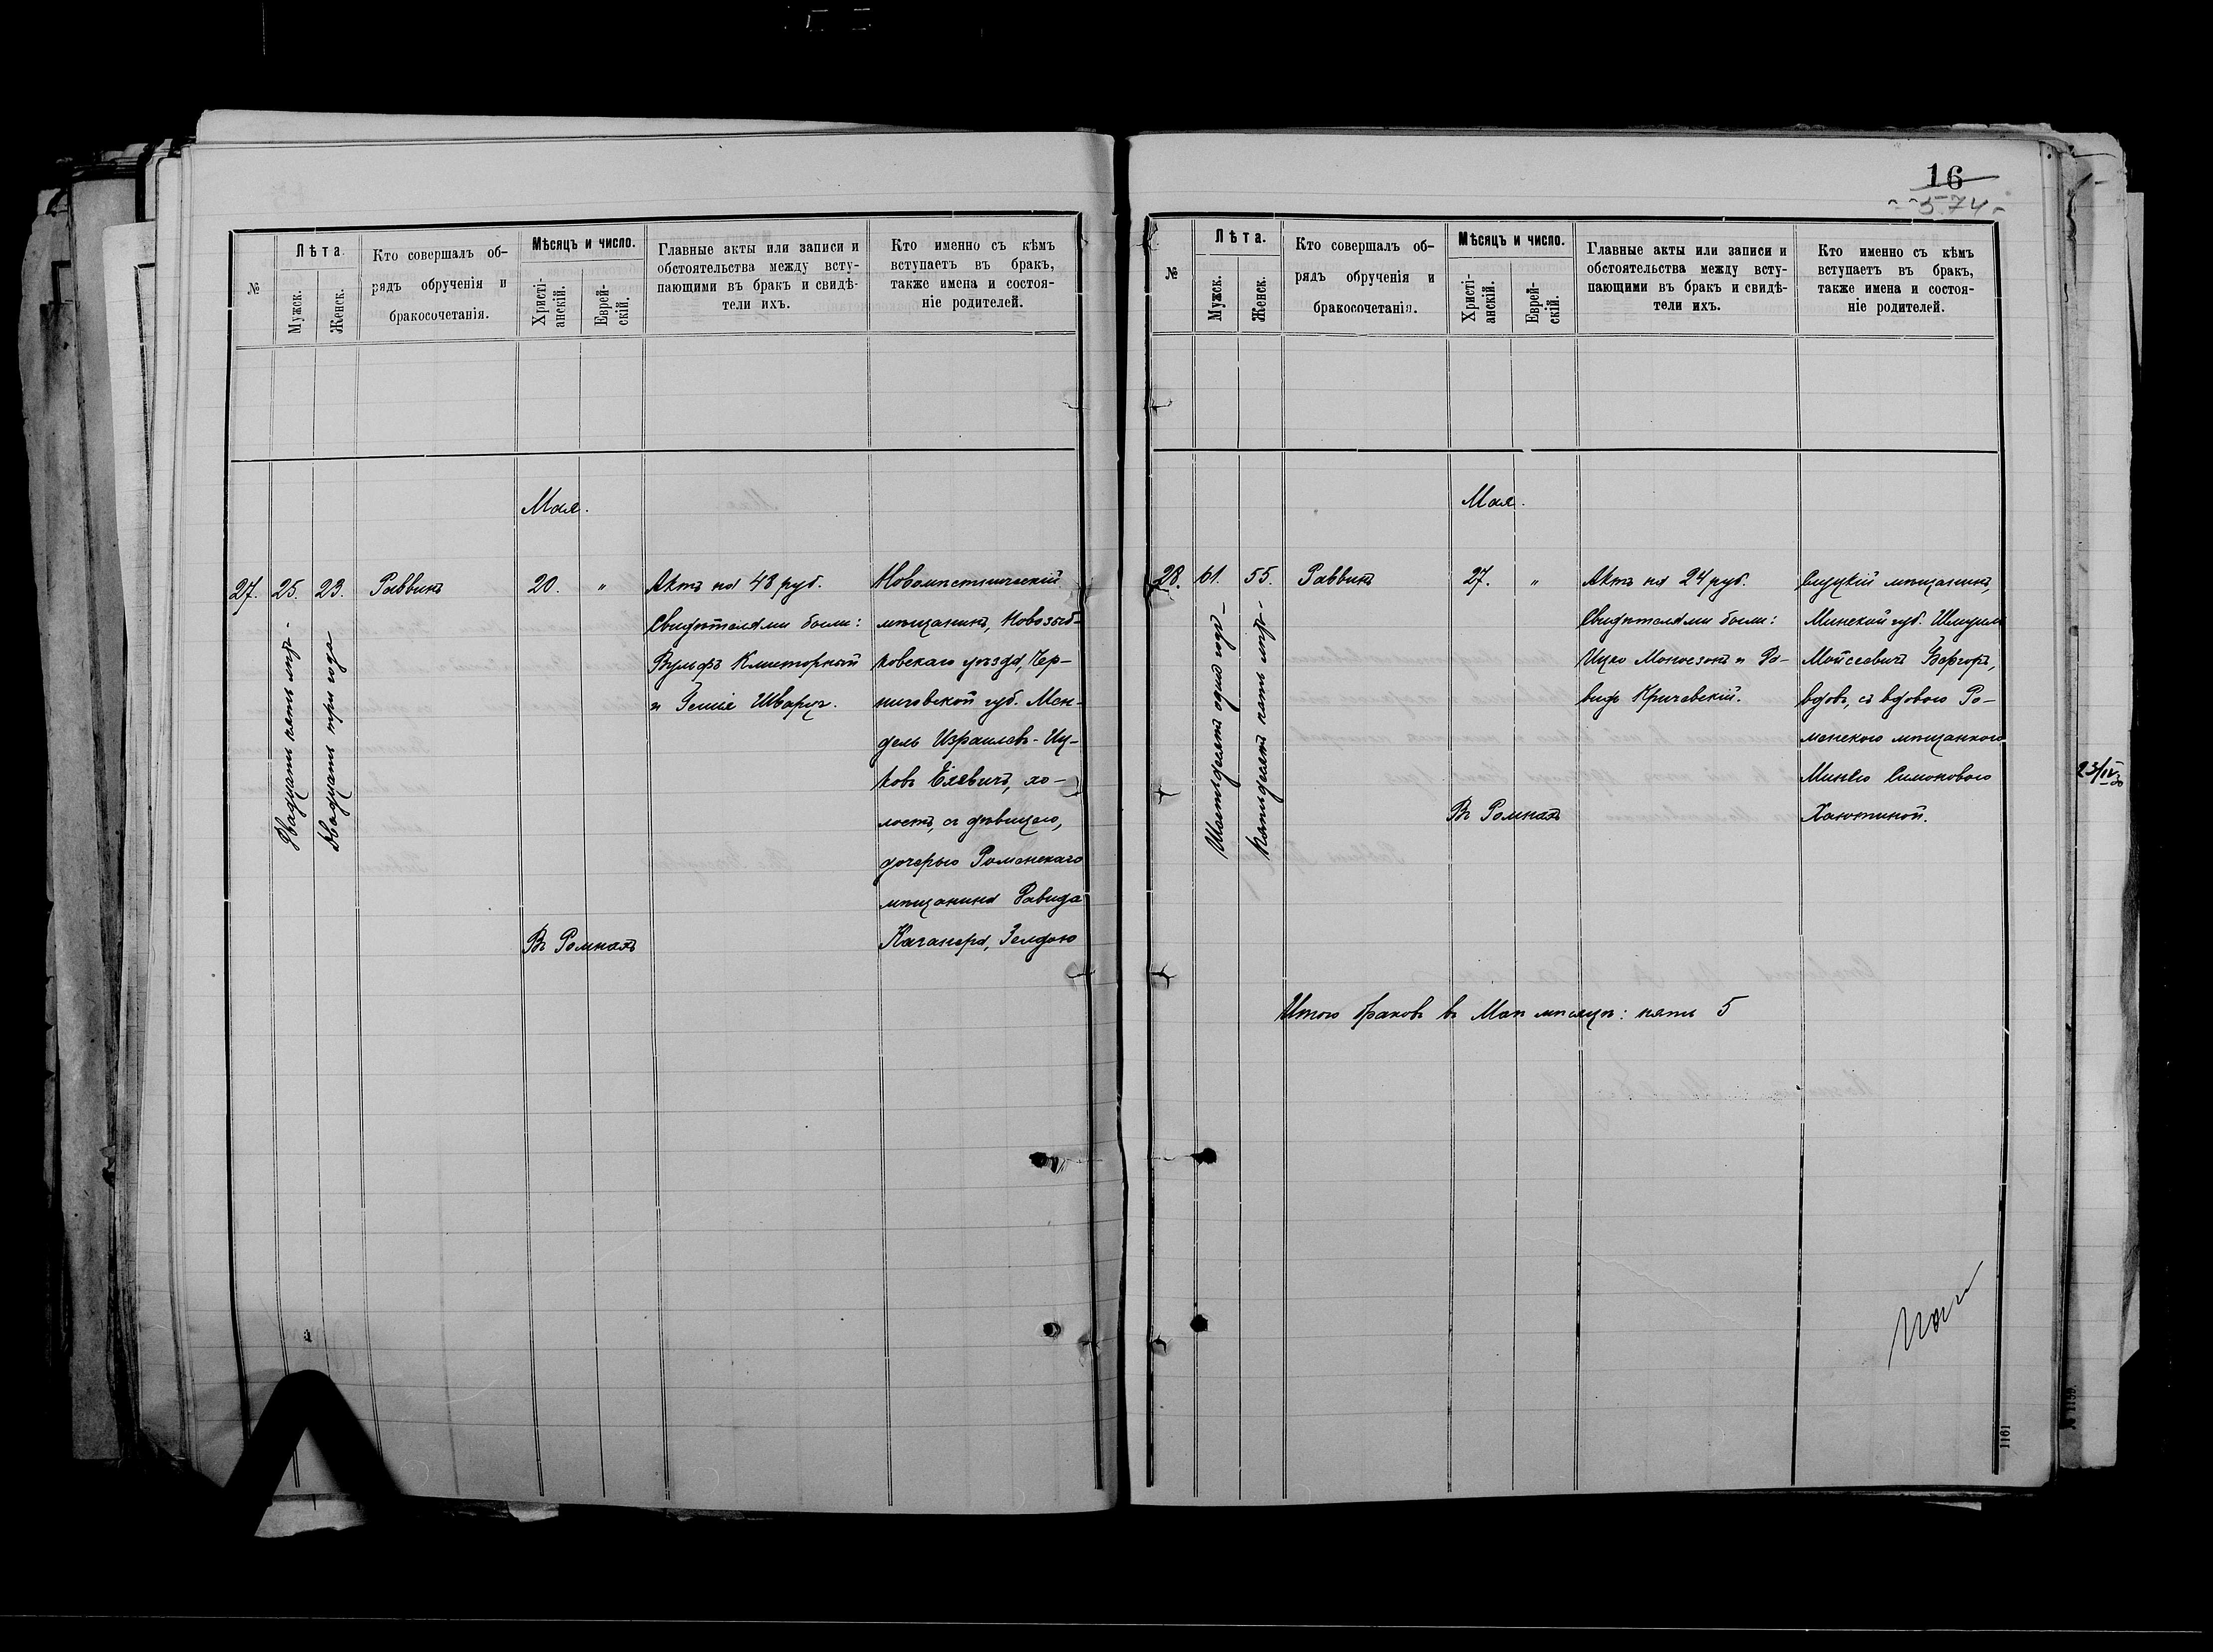 №
Лѣта
Мужск.
Женск.
Кто совершалъ об-
рядъ обрученія и
бракосочетанія.
Мѣсяцъ и число.
Христі-
анскій.
Еврей-
скій.
Главные акты или записи и
обстоятельства между всту-
пающими въ бракъ и свидѣ-
тели ихъ.
Кто именно съ кѣмъ
вступаетъ въ бракъ,
также имена и состоя-
ніе родителей.
Мая.
27. 25. 23. Раввинъ 20. "
Двадцать пять лѣтъ
Двадцать три года
Актъ на 48 руб.
Свидѣтелями были:
Вульфъ
и Шварцъ.
Новомѣстническій
мѣщанинъ, Новозыб-
ковскаго уѣзда, Чер-
ниговской губ. Мен-
дель Израилевъ-Иц-
ковъ Елевичъ, хо-
лостъ, съ дѣвицею,
дочерью Роменскаго
мѣщанина Давида
Каганера, Зелдою
Въ Ромнахъ
16
574
№
Лѣта.
Мужск.
Женск.
Кто совершалъ об-
рядъ обрученія и
бракосочетанія.
Мѣсяцъ и число.
Христі-
анскій.
Еврей-
скій.
Главные акты или записи и
обстоятельства между всту-
пающими въ бракъ и свидѣ-
тели ихъ.
Кто именно съ кѣмъ
вступаетъ въ бракъ,
также имена и состоя-
ніе родителей.
Мая.
28. 61. 55. Раввинъ 27. "
Шестьдесятъ одинъ годъ
Пятьдесятъ пять лѣтъ
Актъ на 24 руб.
Свидѣтелями были:
Ицко Моносзонъ и Да-
видъ Кричевскій.
Слуцкій мѣщанинъ,
Минской губ. Шмуилъ
Мойсеевичъ Бергеръ,
вдовъ, съ вдовою Ро-
менскою мѣщанкою
Минею Симоновою
Хаютиной.
Въ Ромнахъ
Итого браковъ въ Маѣ мѣсяцѣ: пять 5
1161
№ 1159.